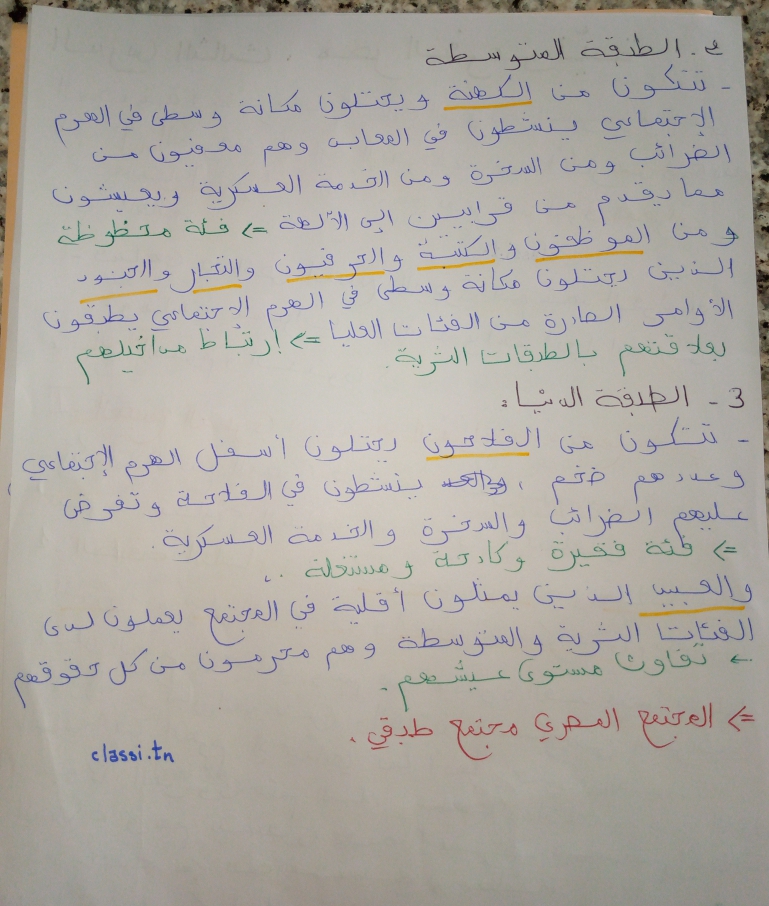 2. الطبقة المتوسطة
- تتكون من الكهنة ويحتلون مكانة وسطى في الهرم
الإجتماعي ينشطون في المعابد وهم معفيون من
الضرائب ومن السخرة ومن الخدمة العسكرية ويعيشون
مما يقدم من قرابين إلى الآلهة => فئة محظوظة
ومن الموظفون والكتبة والحرفيون والتجار والجنود
الذين يحتلون مكانة وسطى في الهرم الاجتماعي يطبقون
الأوامر الصادرة من الفئات العليا => إرتباط مداخيلهم
بعلاقتهم بالطبقات الثرية.
3 - الطبقة الدنيا:
- تتكون من الفلاحون يحتلون أسفل الهرم الإجتماعي
وعددهم ضخم، ينشطون في الفلاحة وتفرض
عليهم الضرائب والسخرة والخدمة العسكرية.
=> فئة فقيرة وكادحة ومستغلة ..
والعبيد الذين يمثلون أقلية في المجتمع يعملون لدى
الفئات الثرية والمتوسطة وهم محرمون من كل حقوقهم
← تفاوت مستوى عيشهم.
=> المجتمع المصري مجتمع طبقي.
classi.tn